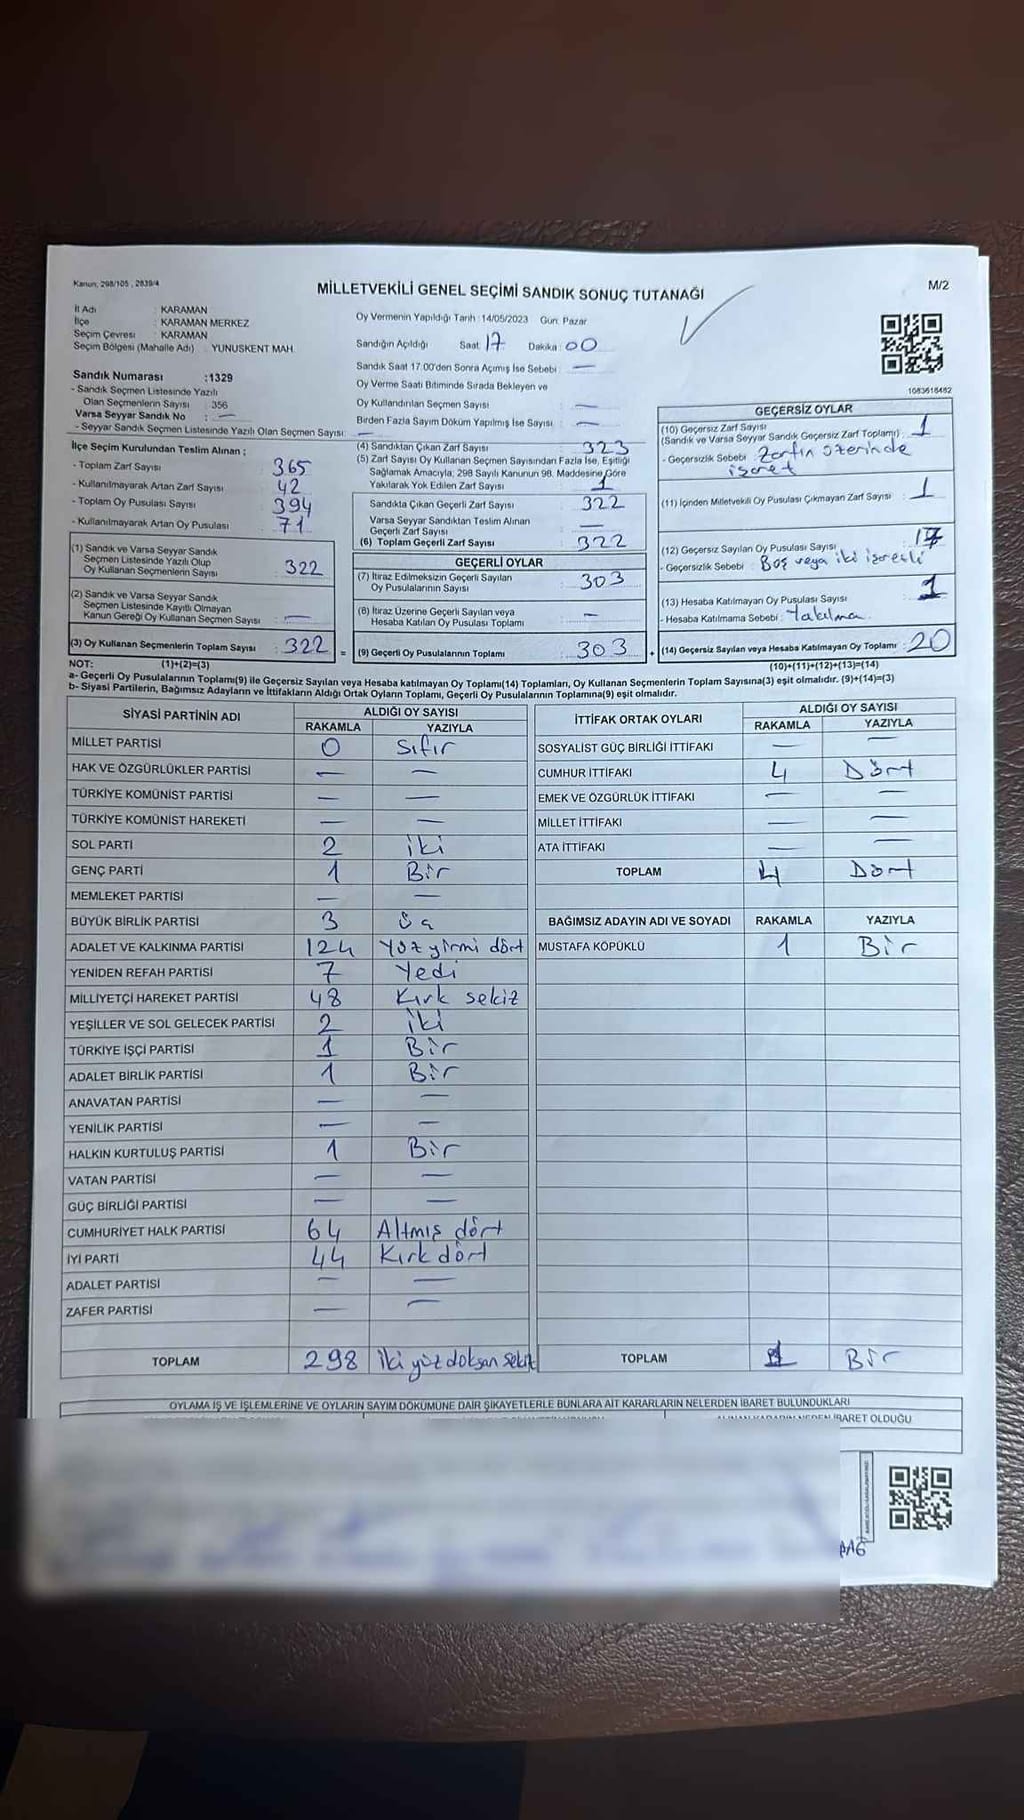 Kanun; 298/105 , 2839/4
MİLLETVEKİLİ GENEL SEÇİMİ SANDIK SONUÇ TUTANAĞI
M/2
İl Adı : KARAMAN
İlçe : KARAMAN MERKEZ
Seçim Çevresi : KARAMAN
Seçim Bölgesi (Mahalle Adı) : YUNUSKENT MAH.
Sandık Numarası :1329
- Sandık Seçmen Listesinde Yazılı
Olan Seçmenlerin Sayısı : 356
Varsa Seyyar Sandık No : —
- Seyyar Sandık Seçmen Listesinde Yazılı Olan Seçmen Sayısı: —
Oy Vermenin Yapıldığı Tarih :14/05/2023 Gün: Pazar
Sandığın Açıldığı Saat: 17 Dakika: 00
Sandık Saat 17.00'den Sonra Açımış İse Sebebi : —
Oy Verme Saati Bitiminde Sırada Bekleyen ve
Oy Kullandırılan Seçmen Sayısı : —
Birden Fazla Sayım Döküm Yapılmış İse Sayısı : —
1083616482
İlçe Seçim Kurulundan Teslim Alınan ;
- Toplam Zarf Sayısı : 365
- Kullanılmayarak Artan Zarf Sayısı : 42
- Toplam Oy Pusulası Sayısı : 394
- Kullanılmayarak Artan Oy Pusulası : 71
(1) Sandık ve Varsa Seyyar Sandık
Seçmen Listesinde Yazılı Olup
Oy Kullanan Seçmenlerin Sayısı : 322
(2) Sandık ve Varsa Seyyar Sandık
Seçmen Listesinde Kayıtlı Olmayan
Kanun Gereği Oy Kullanan Seçmen Sayısı : —
(3) Oy Kullanan Seçmenlerin Toplam Sayısı : 322 =
(4) Sandıktan Çıkan Zarf Sayısı : 323
(5) Zarf Sayısı Oy Kullanan Seçmen Sayısından Fazla İse, Eşitliği
Sağlamak Amacıyla; 298 Sayılı Kanunun 98. Maddesine Göre
Yakılarak Yok Edilen Zarf Sayısı : 1
Sandıkta Çıkan Geçerli Zarf Sayısı : 322
Varsa Seyyar Sandıktan Teslim Alınan
Geçerli Zarf Sayısı : —
(6) Toplam Geçerli Zarf Sayısı : 322
GEÇERLİ OYLAR
(7) İtiraz Edilmeksizin Geçerli Sayılan
Oy Pusulalarının Sayısı : 303
(8) İtiraz Üzerine Geçerli Sayılan veya
Hesaba Katılan Oy Pusulası Toplamı : —
(9) Geçerli Oy Pusulalarının Toplamı : 303 +
GEÇERSİZ OYLAR
(10) Geçersiz Zarf Sayısı
(Sandık ve Varsa Seyyar Sandık Geçersiz Zarf Toplamı) : 1
- Geçersizlik Sebebi : Zarfın üzerinde
işaret
(11) İçinden Milletvekili Oy Pusulası Çıkmayan Zarf Sayısı : 1
(12) Geçersiz Sayılan Oy Pusulası Sayısı : 17
- Geçersizlik Sebebi : Boş veya iki işaretli
(13) Hesaba Katılmayan Oy Pusulası Sayısı : 1
- Hesaba Katılmama Sebebi : Yakılma
(14) Geçersiz Sayılan veya Hesaba Katılmayan Oy Toplamı : 20
NOT: (1)+(2)=(3)
(10)+(11)+(12)+(13)=(14)
a- Geçerli Oy Pusulalarının Toplamı(9) ile Geçersiz Sayılan veya Hesaba katılmayan Oy Toplamı(14) Toplamları, Oy Kullanan Seçmenlerin Toplam Sayısına(3) eşit olmalıdır. (9)+(14)=(3)
b- Siyasi Partilerin, Bağımsız Adayların ve İttifakların Aldığı Ortak Oyların Toplamı, Geçerli Oy Pusulalarının Toplamına(9) eşit olmalıdır.
SİYASİ PARTİNİN ADI ALDIĞI OY SAYISI
RAKAMLA YAZIYLA
MİLLET PARTİSİ 0 Sıfır
HAK VE ÖZGÜRLÜKLER PARTİSİ — —
TÜRKİYE KOMÜNİST PARTİSİ — —
TÜRKİYE KOMÜNİST HAREKETİ — —
SOL PARTİ 2 iki
GENÇ PARTİ 1 Bir
MEMLEKET PARTİSİ — —
BÜYÜK BİRLİK PARTİSİ 3 üç
ADALET VE KALKINMA PARTİSİ 124 Yüz yirmi dört
YENİDEN REFAH PARTİSİ 7 Yedi
MİLLİYETÇİ HAREKET PARTİSİ 48 Kırk sekiz
YEŞİLLER VE SOL GELECEK PARTİSİ 2 iki
TÜRKİYE İŞÇİ PARTİSİ 1 Bir
ADALET BİRLİK PARTİSİ 1 Bir
ANAVATAN PARTİSİ — —
YENİLİK PARTİSİ — —
HALKIN KURTULUŞ PARTİSİ 1 Bir
VATAN PARTİSİ — —
GÜÇ BİRLİĞİ PARTİSİ — —
CUMHURİYET HALK PARTİSİ 64 Altmış dört
İYİ PARTİ 44 Kırk dört
ADALET PARTİSİ — —
ZAFER PARTİSİ — —
TOPLAM 298 iki yüz doksan sekiz
İTTİFAK ORTAK OYLARI ALDIĞI OY SAYISI
RAKAMLA YAZIYLA
SOSYALİST GÜÇ BİRLİĞİ İTTİFAKI — —
CUMHUR İTTİFAKI 4 Dört
EMEK VE ÖZGÜRLÜK İTTİFAKI — —
MİLLET İTTİFAKI — —
ATA İTTİFAKI — —
TOPLAM 4 Dört
BAĞIMSIZ ADAYIN ADI VE SOYADI RAKAMLA YAZIYLA
MUSTAFA KÖPÜKLÜ 1 Bir
TOPLAM 1 Bir
OYLAMA İŞ VE İŞLEMLERİNE VE OYLARIN SAYIM DÖKÜMÜNE DAİR ŞİKAYETLERLE BUNLARA AİT KARARLARIN NELERDEN İBARET BULUNDUKLARI
İBARET OLDUĞU